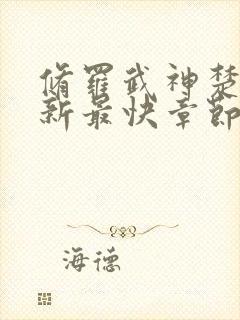 脩羅武神楚
新最快章節
海德